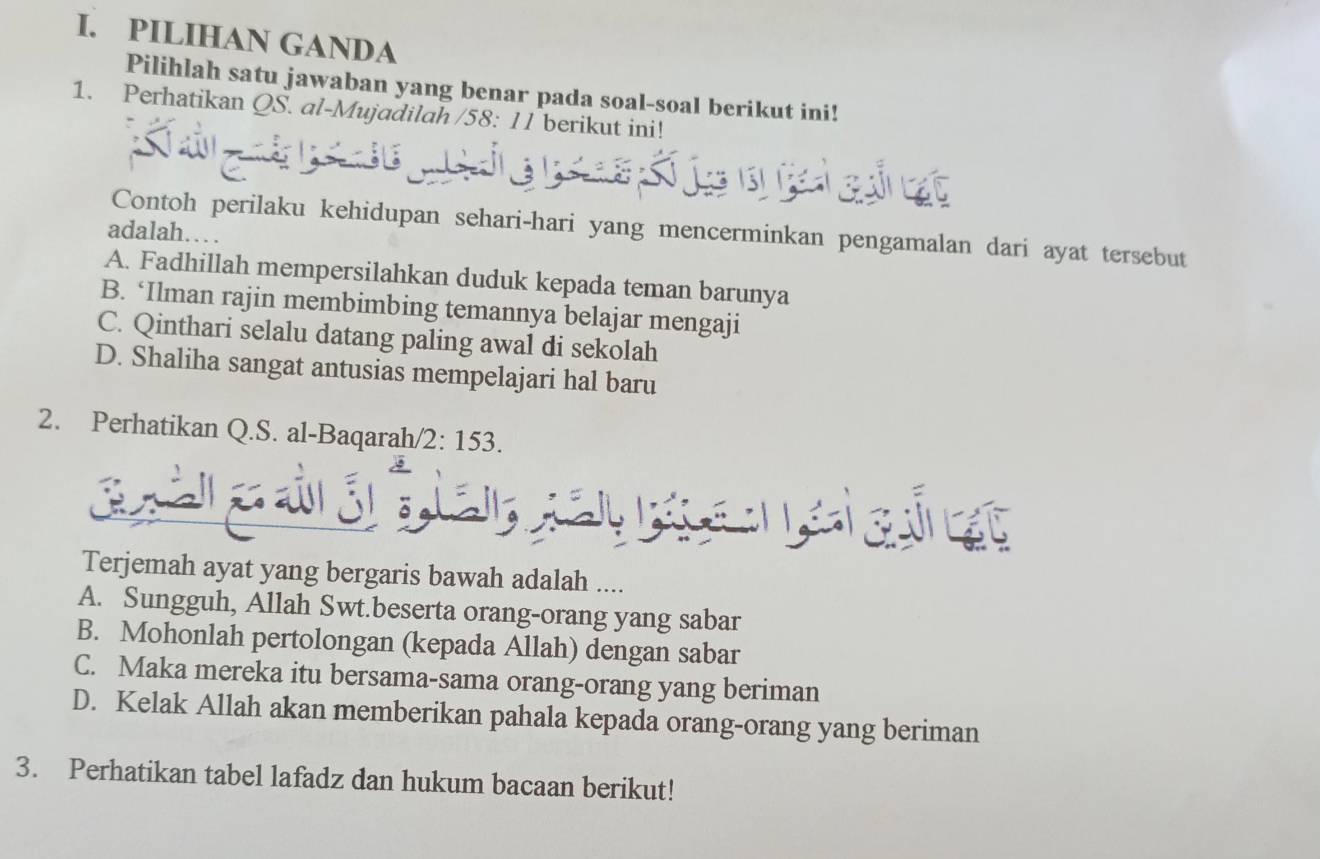 I. PILIHAN GANDA
Pilihlah satu jawaban yang benar pada soal-soal berikut ini!
1. Perhatikan QS. al-Mujadilah /58: 11 berikut ini!
يٰٓاَيُّهَا الَّذِيْنَ اٰمَنُوْٓا اِذَا قِيْلَ لَكُمْ تَفَسَّحُوْا فِى الْمَجٰلِسِ فَافْسَحُوْا يَفْسَحِ اللّٰهُ لَكُمْۚ
Contoh perilaku kehidupan sehari-hari yang mencerminkan pengamalan dari ayat tersebut
adalah….
A. Fadhillah mempersilahkan duduk kepada teman barunya
B. ‘Ilman rajin membimbing temannya belajar mengaji
C. Qinthari selalu datang paling awal di sekolah
D. Shaliha sangat antusias mempelajari hal baru
2. Perhatikan Q.S. al-Baqarah/2: 153.
يٰٓاَيُّهَا الَّذِيْنَ اٰمَنُوا اسْتَعِيْنُوْا بِالصَّبْرِ وَالصَّلٰوةِۗ اِنَّ اللّٰهَ مَعَ الصّٰبِرِيْنَ
Terjemah ayat yang bergaris bawah adalah ....
A. Sungguh, Allah Swt.beserta orang-orang yang sabar
B. Mohonlah pertolongan (kepada Allah) dengan sabar
C. Maka mereka itu bersama-sama orang-orang yang beriman
D. Kelak Allah akan memberikan pahala kepada orang-orang yang beriman
3. Perhatikan tabel lafadz dan hukum bacaan berikut!